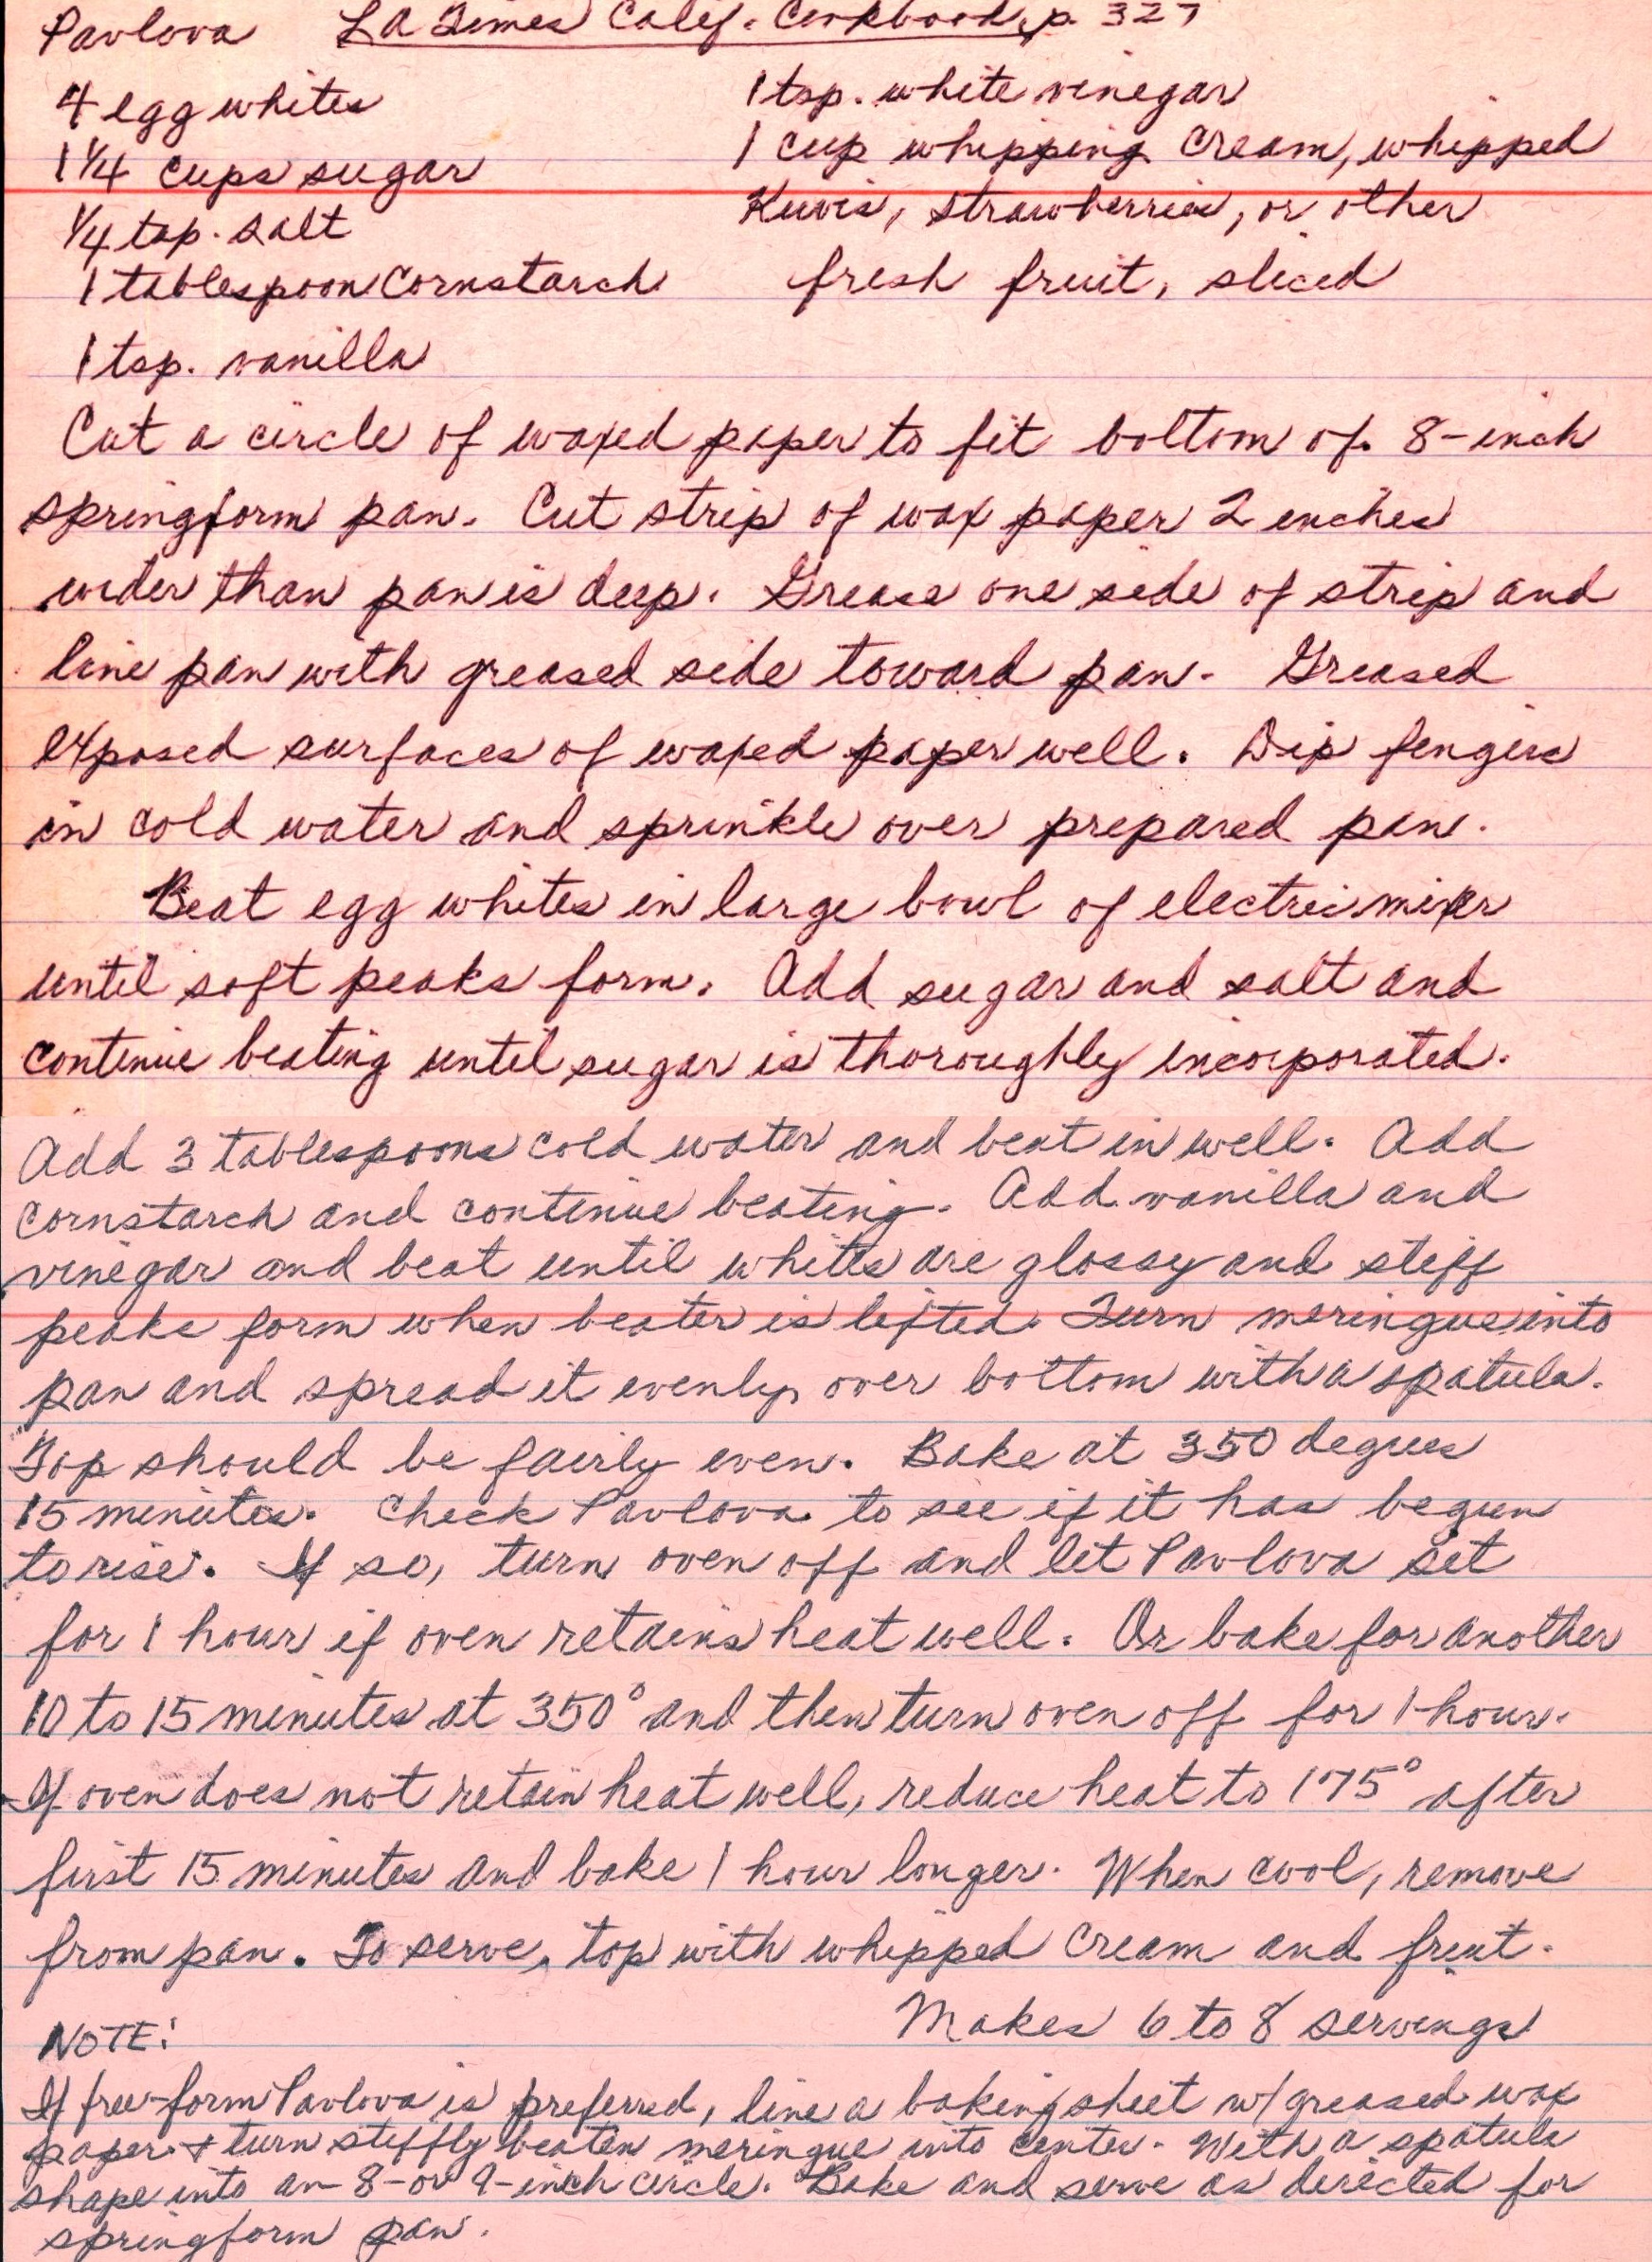 Pavlova LA Times Calif. Cookbook, p. 327
4 egg whites
1 1/4 cups sugar
1/4 tsp. salt
1 tablespoon cornstarch
1 tsp. vanilla
1 tsp. white vinegar
1 cup whipping cream, whipped
Kiwis, strawberries, or other
fresh fruit, sliced
Cut a circle of waxed paper to fit bottom of 8-inch
springform pan. Cut strip of wax paper 2 inches
wider than pan is deep. Grease one side of strip and
line pan with greased side toward pan. Greased
exposed surfaces of waxed paper well. Dip fingers
in cold water and sprinkle over prepared pan.
Beat egg whites in large bowl of electric mixer
until soft peaks form. Add sugar and salt and
continue beating until sugar is thoroughly incorporated.
Add 3 tablespoons cold water and beat in well. Add
cornstarch and continue beating. Add vanilla and
vinegar and beat until whites are glossy and stiff
peaks form when beater is lifted. Turn meringue into
pan and spread it evenly over bottom with a spatula.
Top should be fairly even. Bake at 350 degrees
15 minutes. Check Pavlova to see if it has begun
to rise. If so, turn oven off and let Pavlova set
for 1 hour if oven retains heat well. Or bake for another
10 to 15 minutes at 350° and then turn oven off for 1 hour.
If oven does not retain heat well, reduce heat to 175° after
first 15 minutes and bake 1 hour longer. When cool, remove
from pan. To serve, top with whipped cream and fruit.
Makes 6 to 8 servings
NOTE:
If free-form Pavlova is preferred, line a baking sheet w/ greased wax
paper & turn stiffly beaten meringue into center. With a spatula
shape into an 8- or 9-inch circle. Bake and serve as directed for
springform pan.